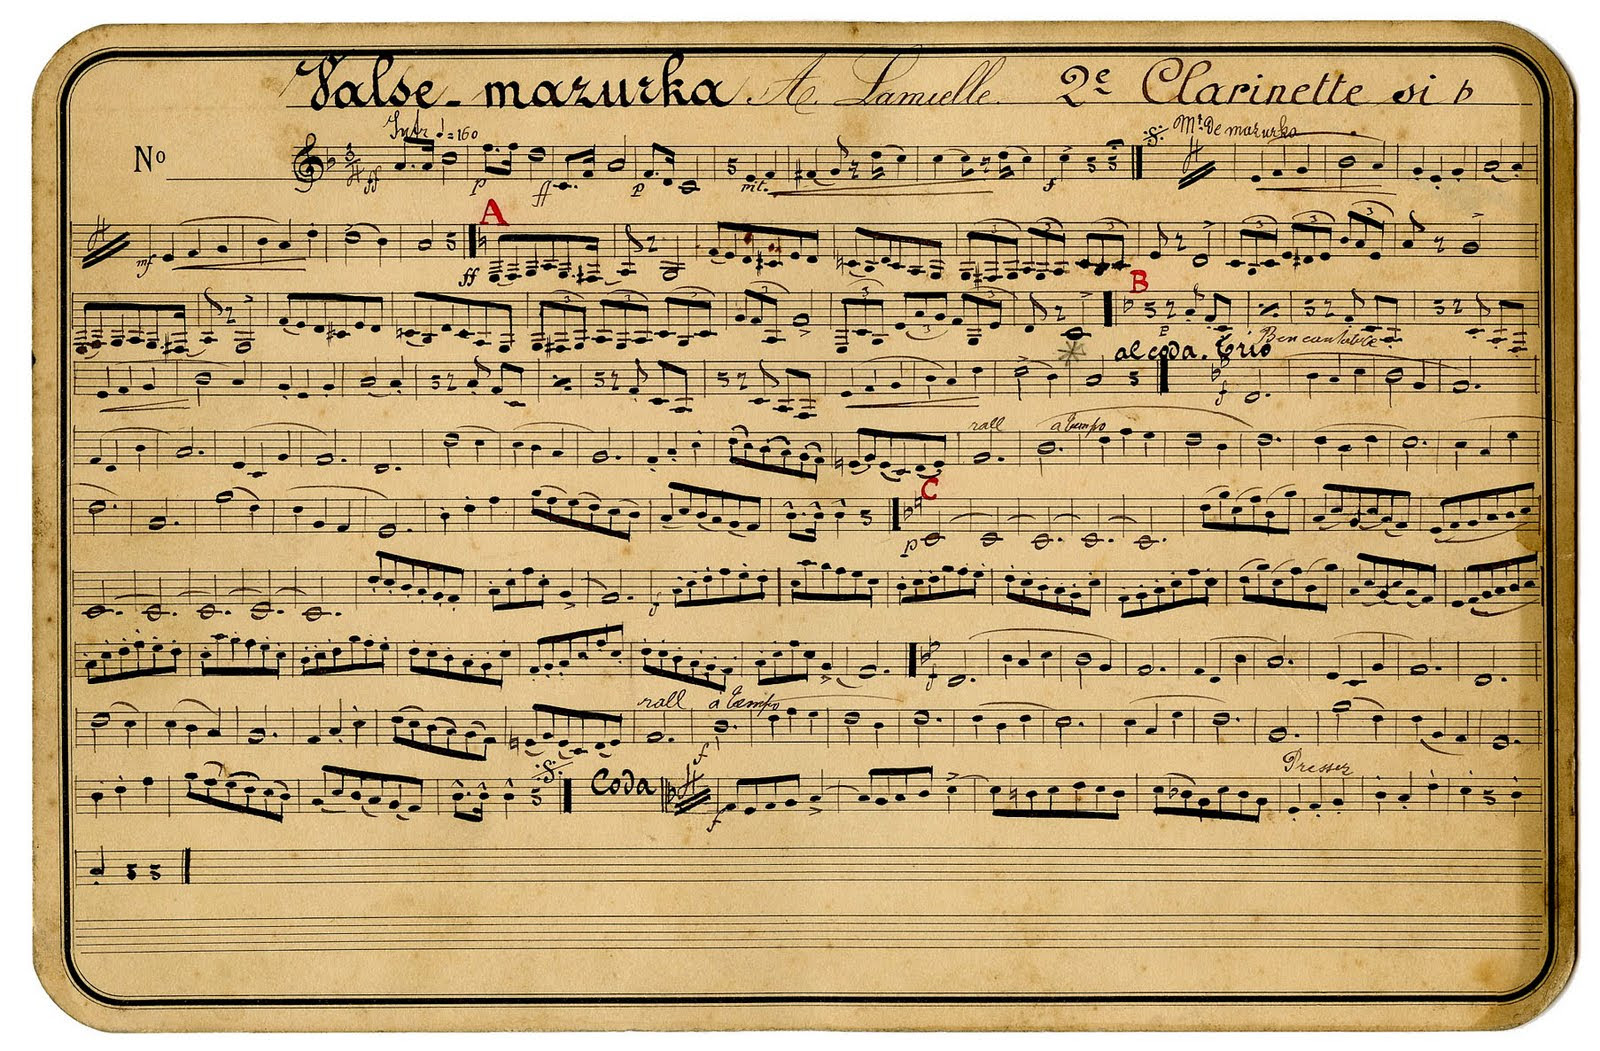 Valse-mazurka A. Lamielle. 2e Clarinette si b
Intr = 160 Mt. De mazurka
No
ff p ff p f
A
mf ff
B
p
al coda. Trio Ben cantabile
f
rall a tempo
C
p
f
f
rall a tempo
f
Coda Pressez
f